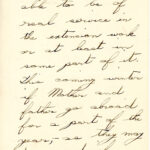 able to be of
real service in
the extension work
or at least in
some part of it.
The coming winter
if Mother and
father go abroad
for a part of the
year, as they may